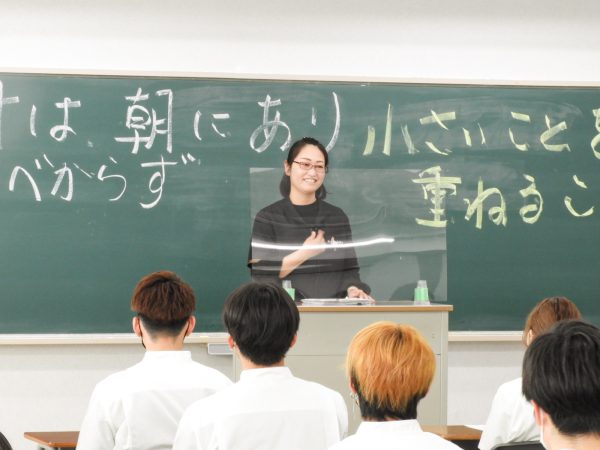 は、朝にあり
べからず
小さいことを
重ねるこ